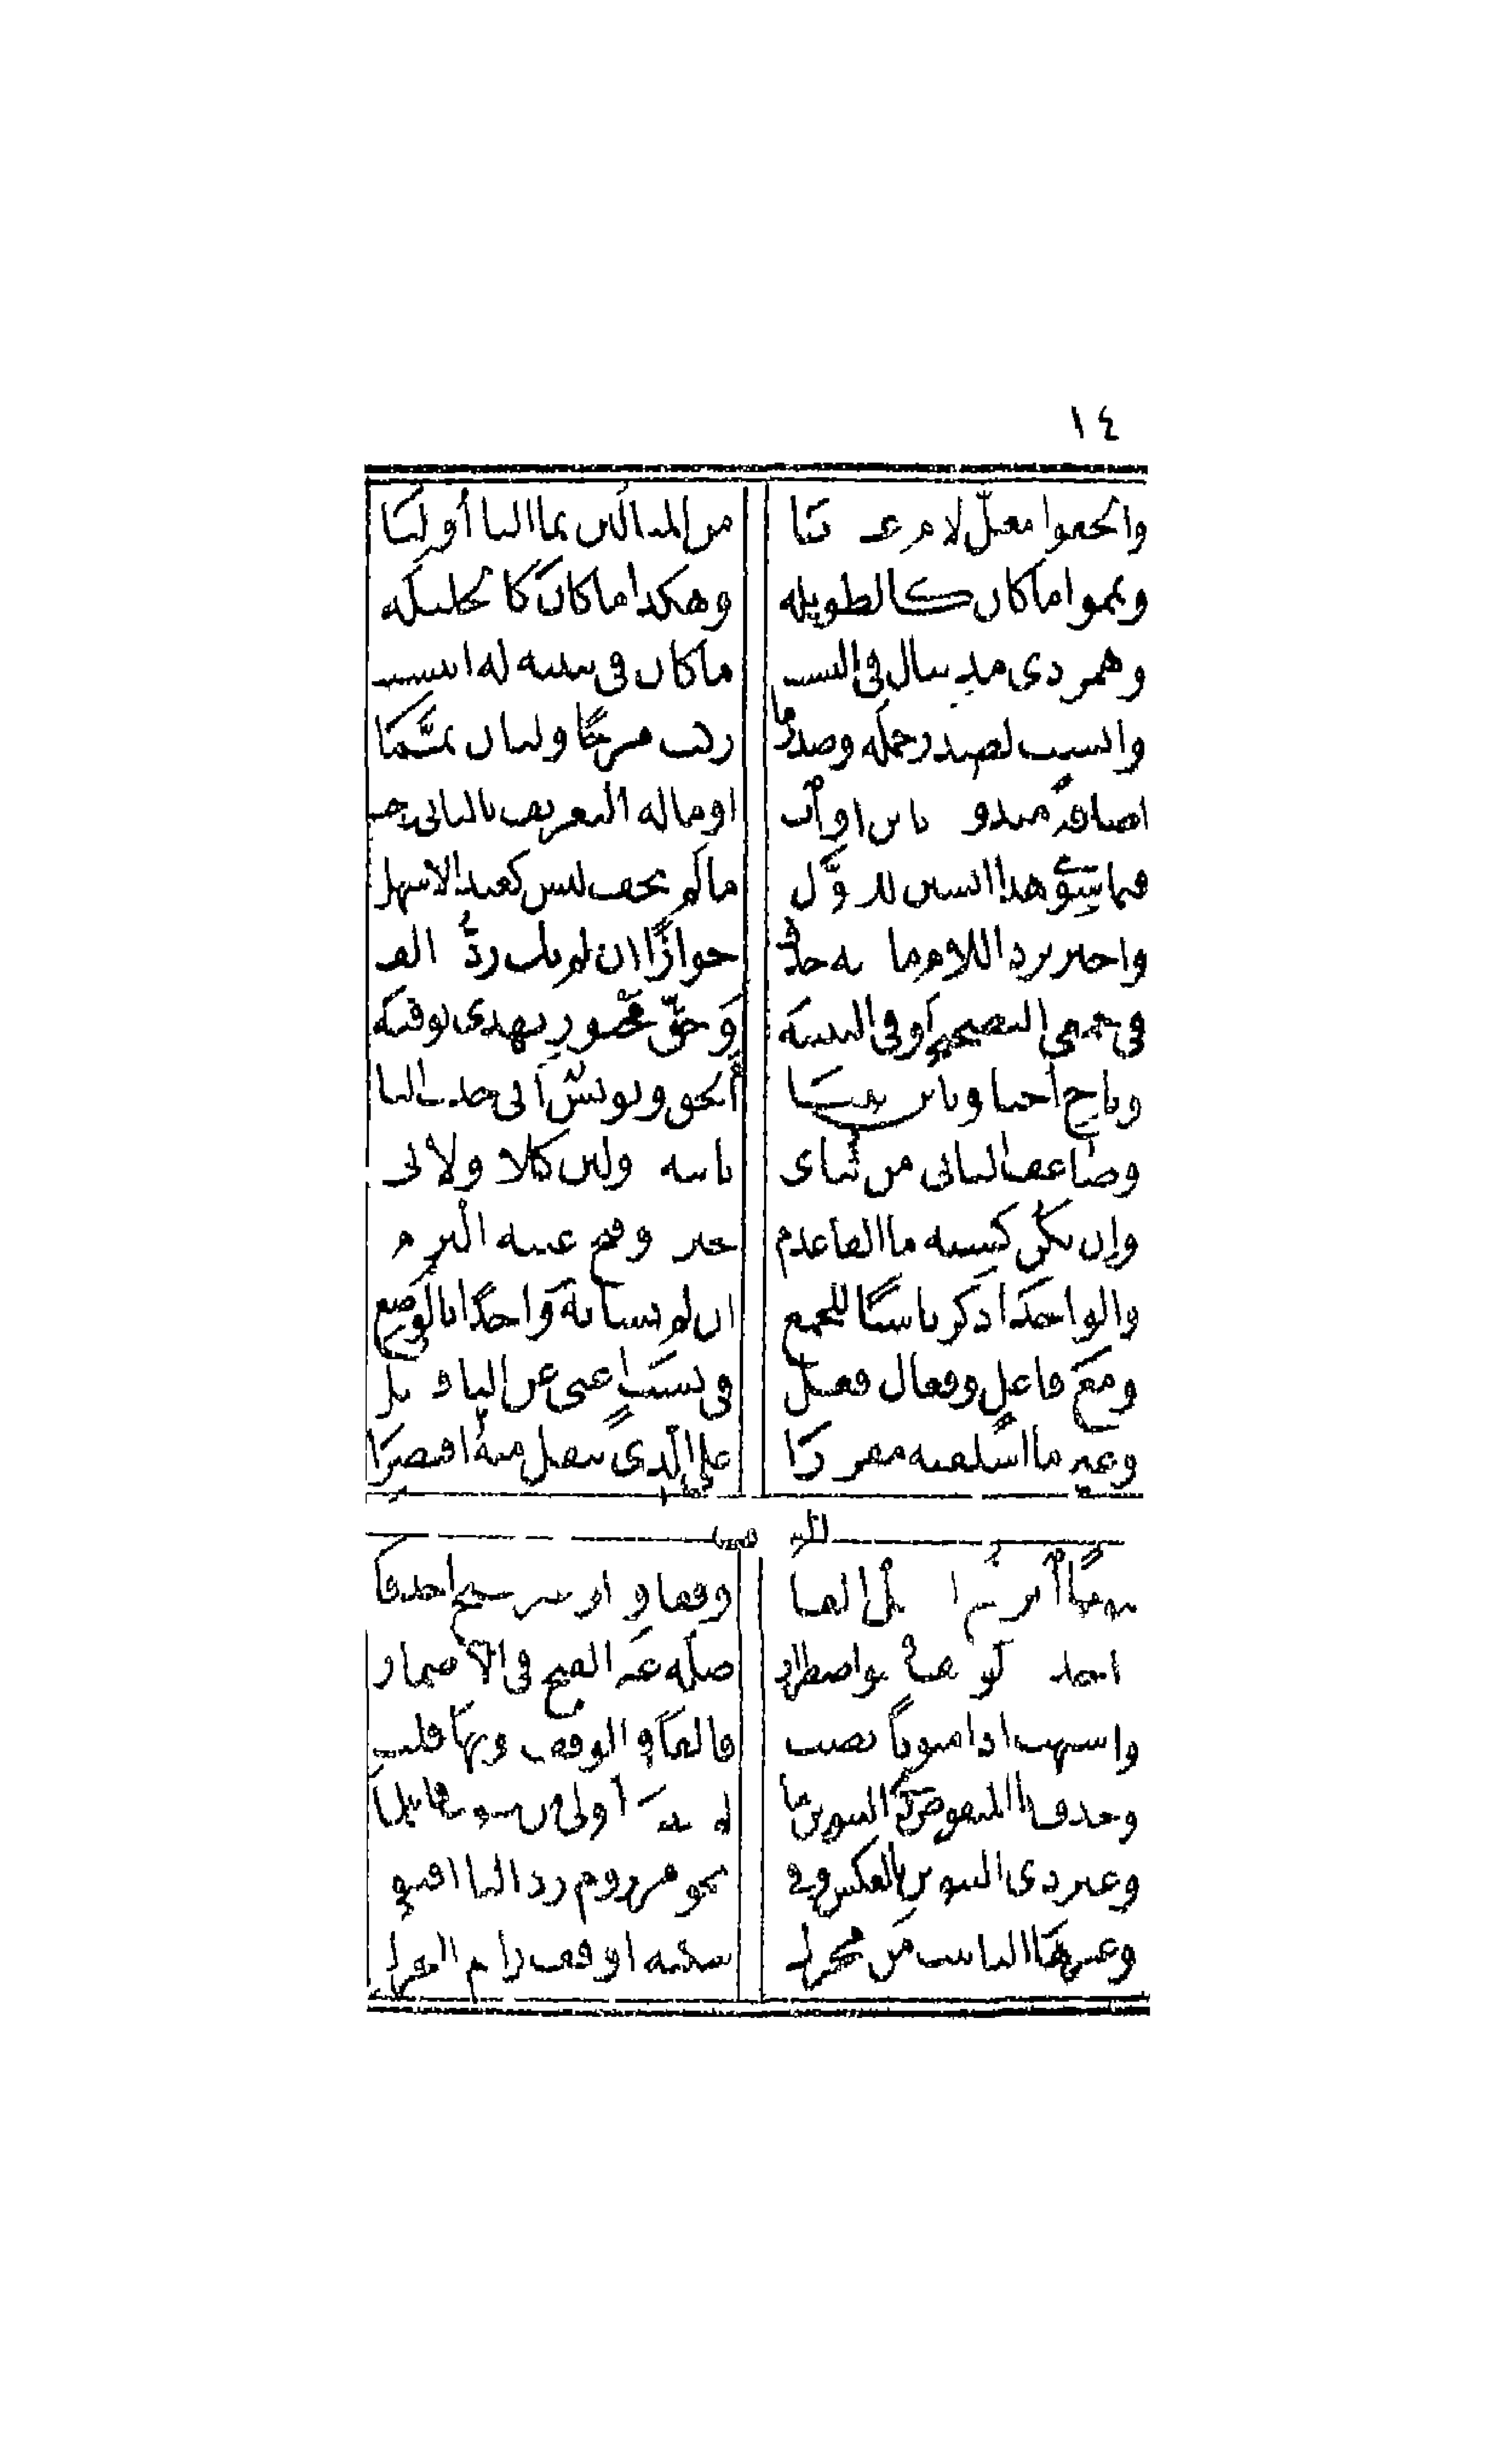 ١٤
وألحقوا معلّ لام عريا من المثالين بما التا أوليا
وتمموا ما كان كالطويله وهكذا ما كان كالجليله
وهمز ذي مد ينال في النسب ما كان في تثنية له انتسب
وانسب لصدر جملة وصدر ما ركب مزجًا ولثان تمّما
إضافةً مبدوة بابن أو أب أو ما له التعريف بالثاني وجب
فيما سوى هذا انسبن للأوّل ما لم يخف لبس كعبد الأشهل
واجبر برد اللام ما منه حذف جوازًا ان لم يك ردّه ألف
في جمعي التصحيح أو في التثنيه وحقّ مجبور بهذي توفيه
وبأخ أختا وبابن بنتا ألحق ويونس أبى حذف التا
وضاعف الثاني من ثنائي ثانيه ذو لين كلا ولائي
وإن يكن كشية ما الفا عدم فجبره وفتح عينه التزم
والواحد اذكر ناسبًا للجمع ان لم يشابه واحدًا بالوضع
ومع فاعل وفعال فعل في نسب أغنى عن اليا فقبل
وغير ما أسلفته مقررا على الّذي ينقل منه اقتصرا
الوقف
تنوينًا أثر فتح اجعل ألفا وقفا وتلو غير فتح احذفا
واحذف لوقف في سوى اضطرار صلة غير الفتح في الاضمار
وأشبهت إذا منونًا نصب فألفًا في الوقف نونها قلب
وحذف يا المنقوص ذي التنوين ما لم ينصب أولى من ثبوت فاعلما
وغير ذي التنوين بالعكس وفي نحو مر لزوم رد اليا اقتفي
وغير ها التأنيث من محرك سكنه أو قف رائم التحرك